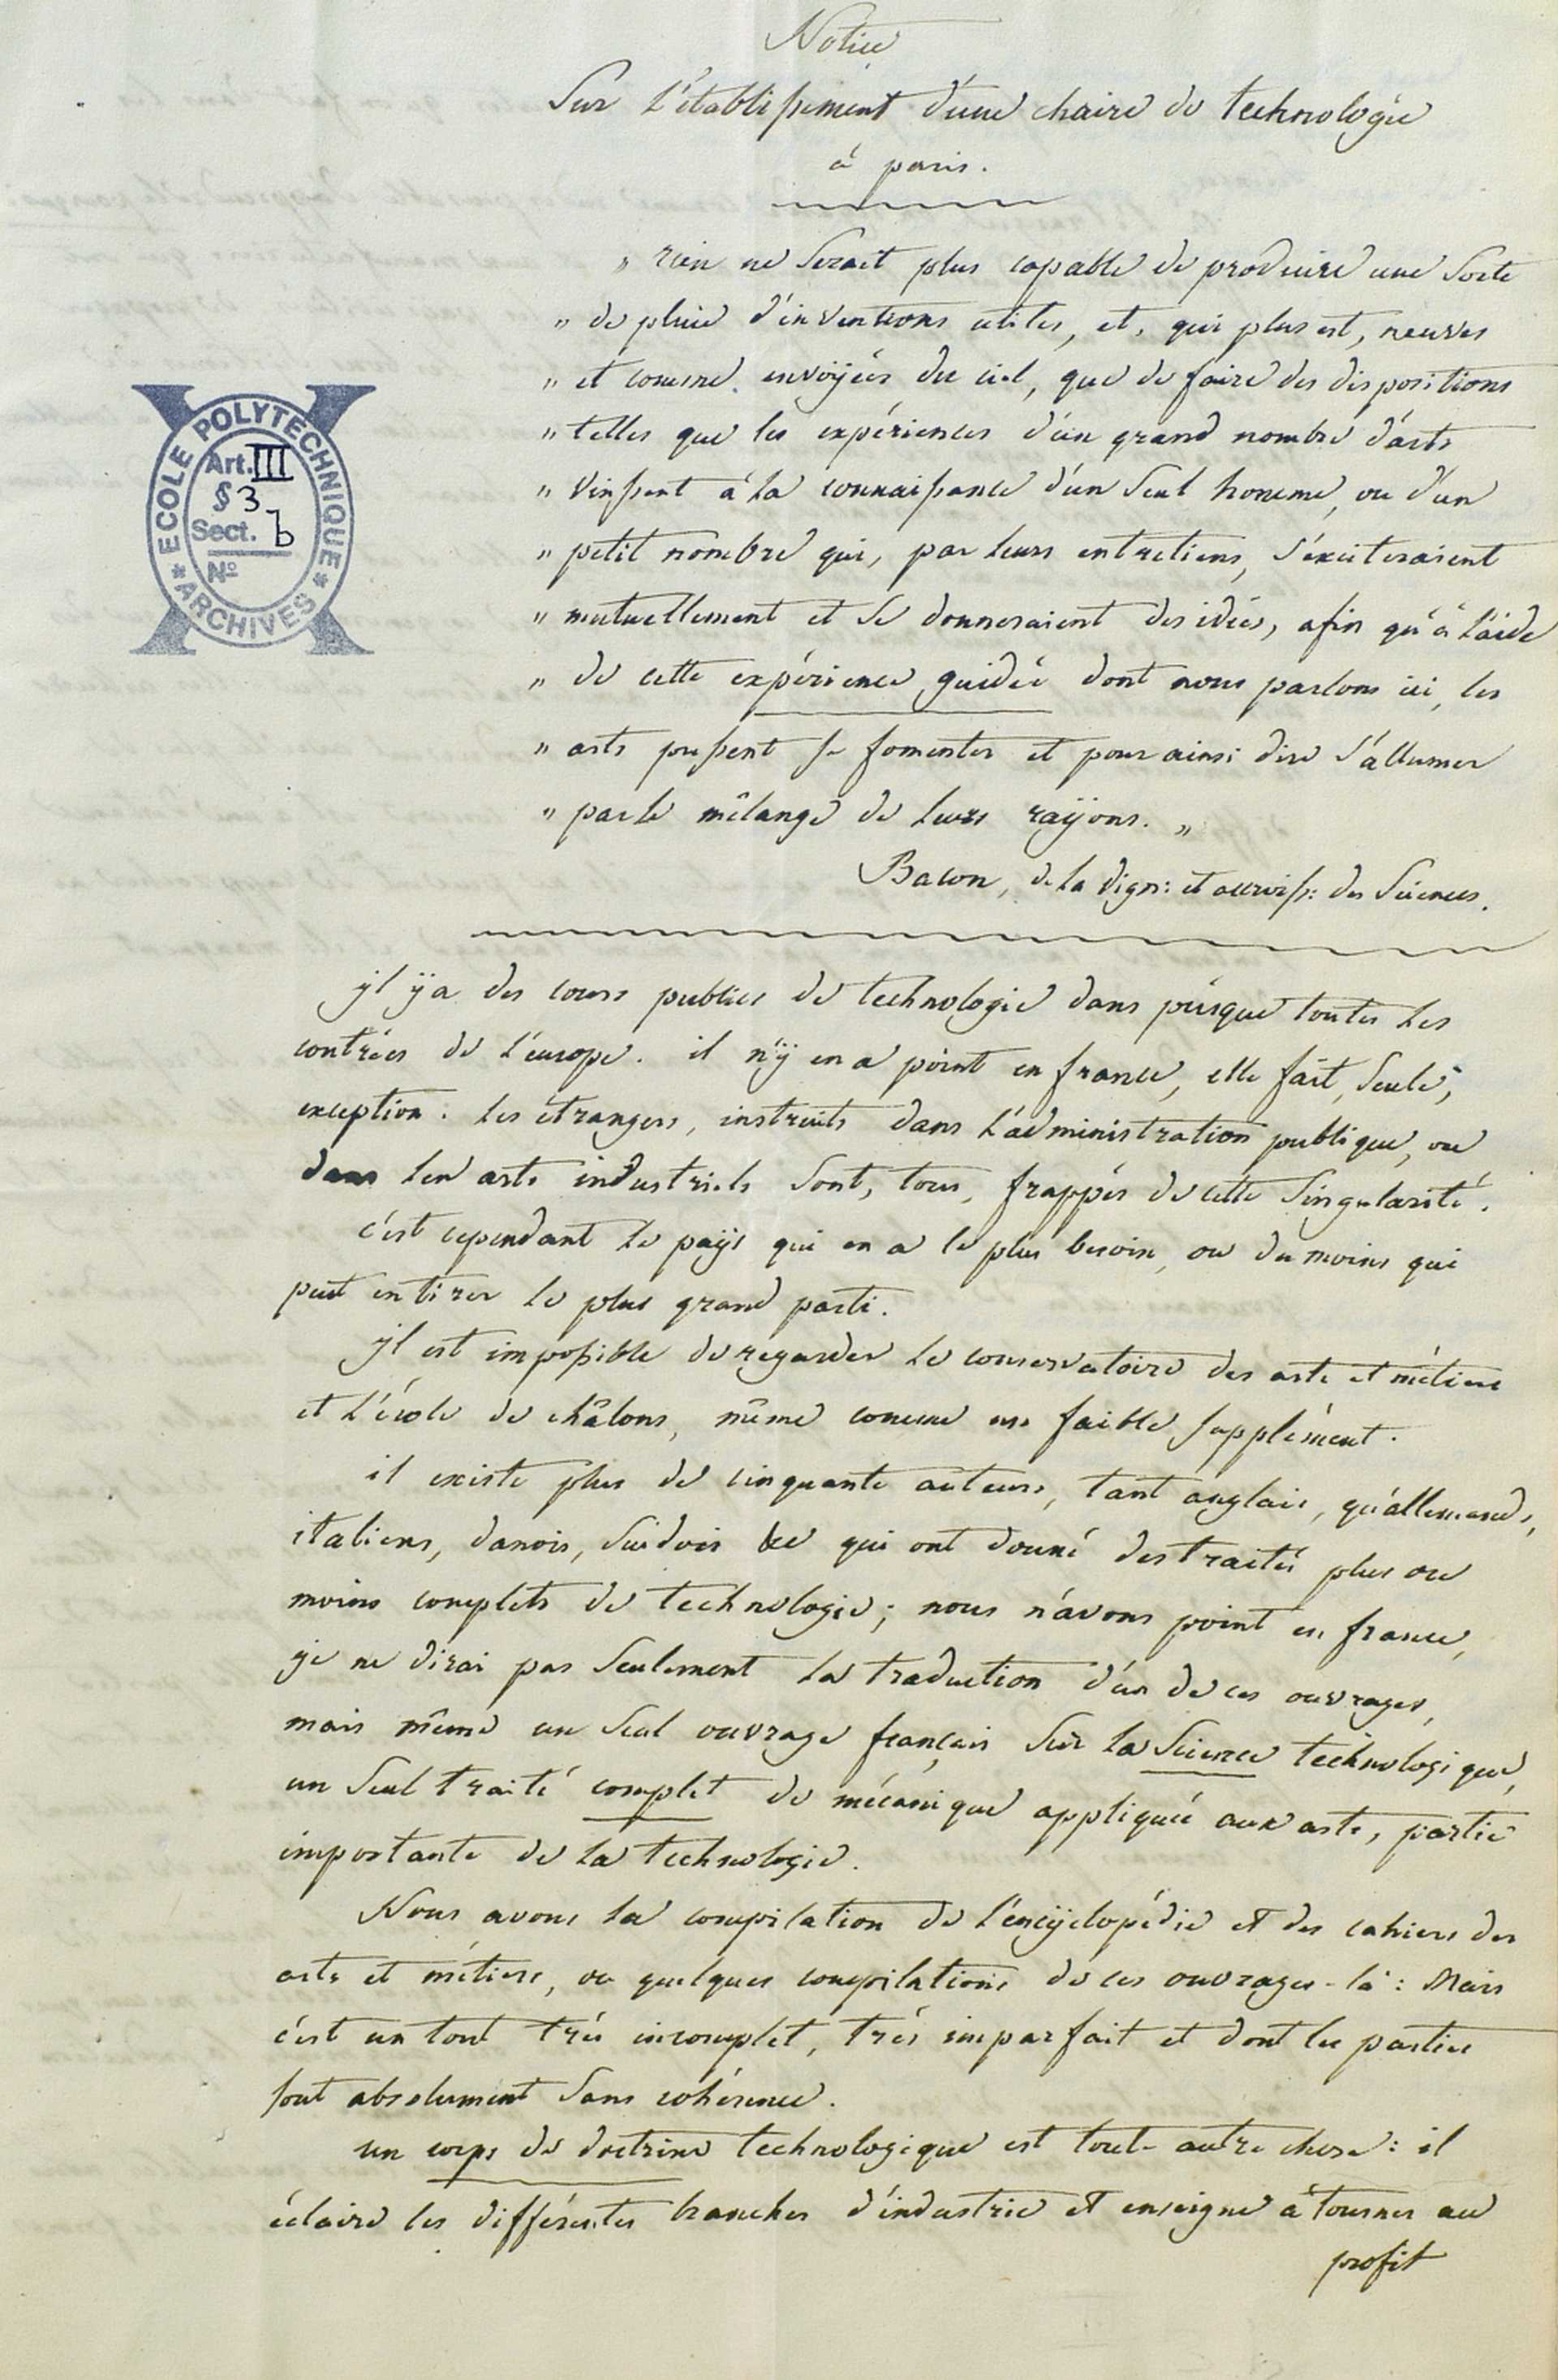 Notice
Sur l'établissement d'une chaire de technologie
à paris.
„ rien ne serait plus capable de produire une sorte
„ de pluie d'inventions utiles, et, qui plus est, neuves
„ et comme envoyées du ciel, que de faire des dispositions
„ telles que les expériences d'un grand nombre d'arts
„ vinssent à la connaissance d'un seul homme, ou d'un
„ petit nombre qui, par leurs entretiens, s'exciteraient
„ mutuellement et se donneraient des idées, afin qu'à l'aide
„ de cette expérience guidée dont nous parlons ici, les
„ arts pussent se fomenter et pour ainsi dire s'allumer
„ par le mélange de leurs raÿons. „
Bacon, de la dign: et accroiss: des Sciences.
ECOLE POLYTECHNIQUE
Art. III
§ 3
Sect. b
No
* ARCHIVES *
yl ÿ a des cours publics de technologie dans présque toutes les
contrées de l'europe. il n'ÿ en a point en france, elle fait, seule,
exception. les étrangers, instruits dans l'administration publique, ou
dans les arts industriels sont, tous, frappés de cette singularité.
c'est cependant le paÿs qui en a le plus besoin, ou du moins qui
peut en tirer le plus grand parti.
yl est impossible de regarder le conservatoire des arts et métiers
et l'école de châlons, même comme un faible supplément.
il existe plus de cinquante auteurs, tant anglais, qu'allemands,
italiens, danois, suédois &c qui ont donné des traités plus ou
moins complets de technologie; nous n'avons point en france,
je ne dirai pas seulement la traduction d'un de ces ouvrages,
mais même un seul ouvrage français sur la science technologique,
un seul traité complet de mécanique appliquée aux arts, partie
importante de la technologie.
Nous avons la compilation de l'encÿclopédie et des cahiers des
arts et métiers, ou quelques compilations de ces ouvrages-là: Mais
c'est un tout très incomplet, très imparfait et dont les parties
sont absolument sans cohérence.
un corps de doctrine technologique est toute autre chose: il
éclaire les différentes branches d'industrie et enseigne à tourner au
profit